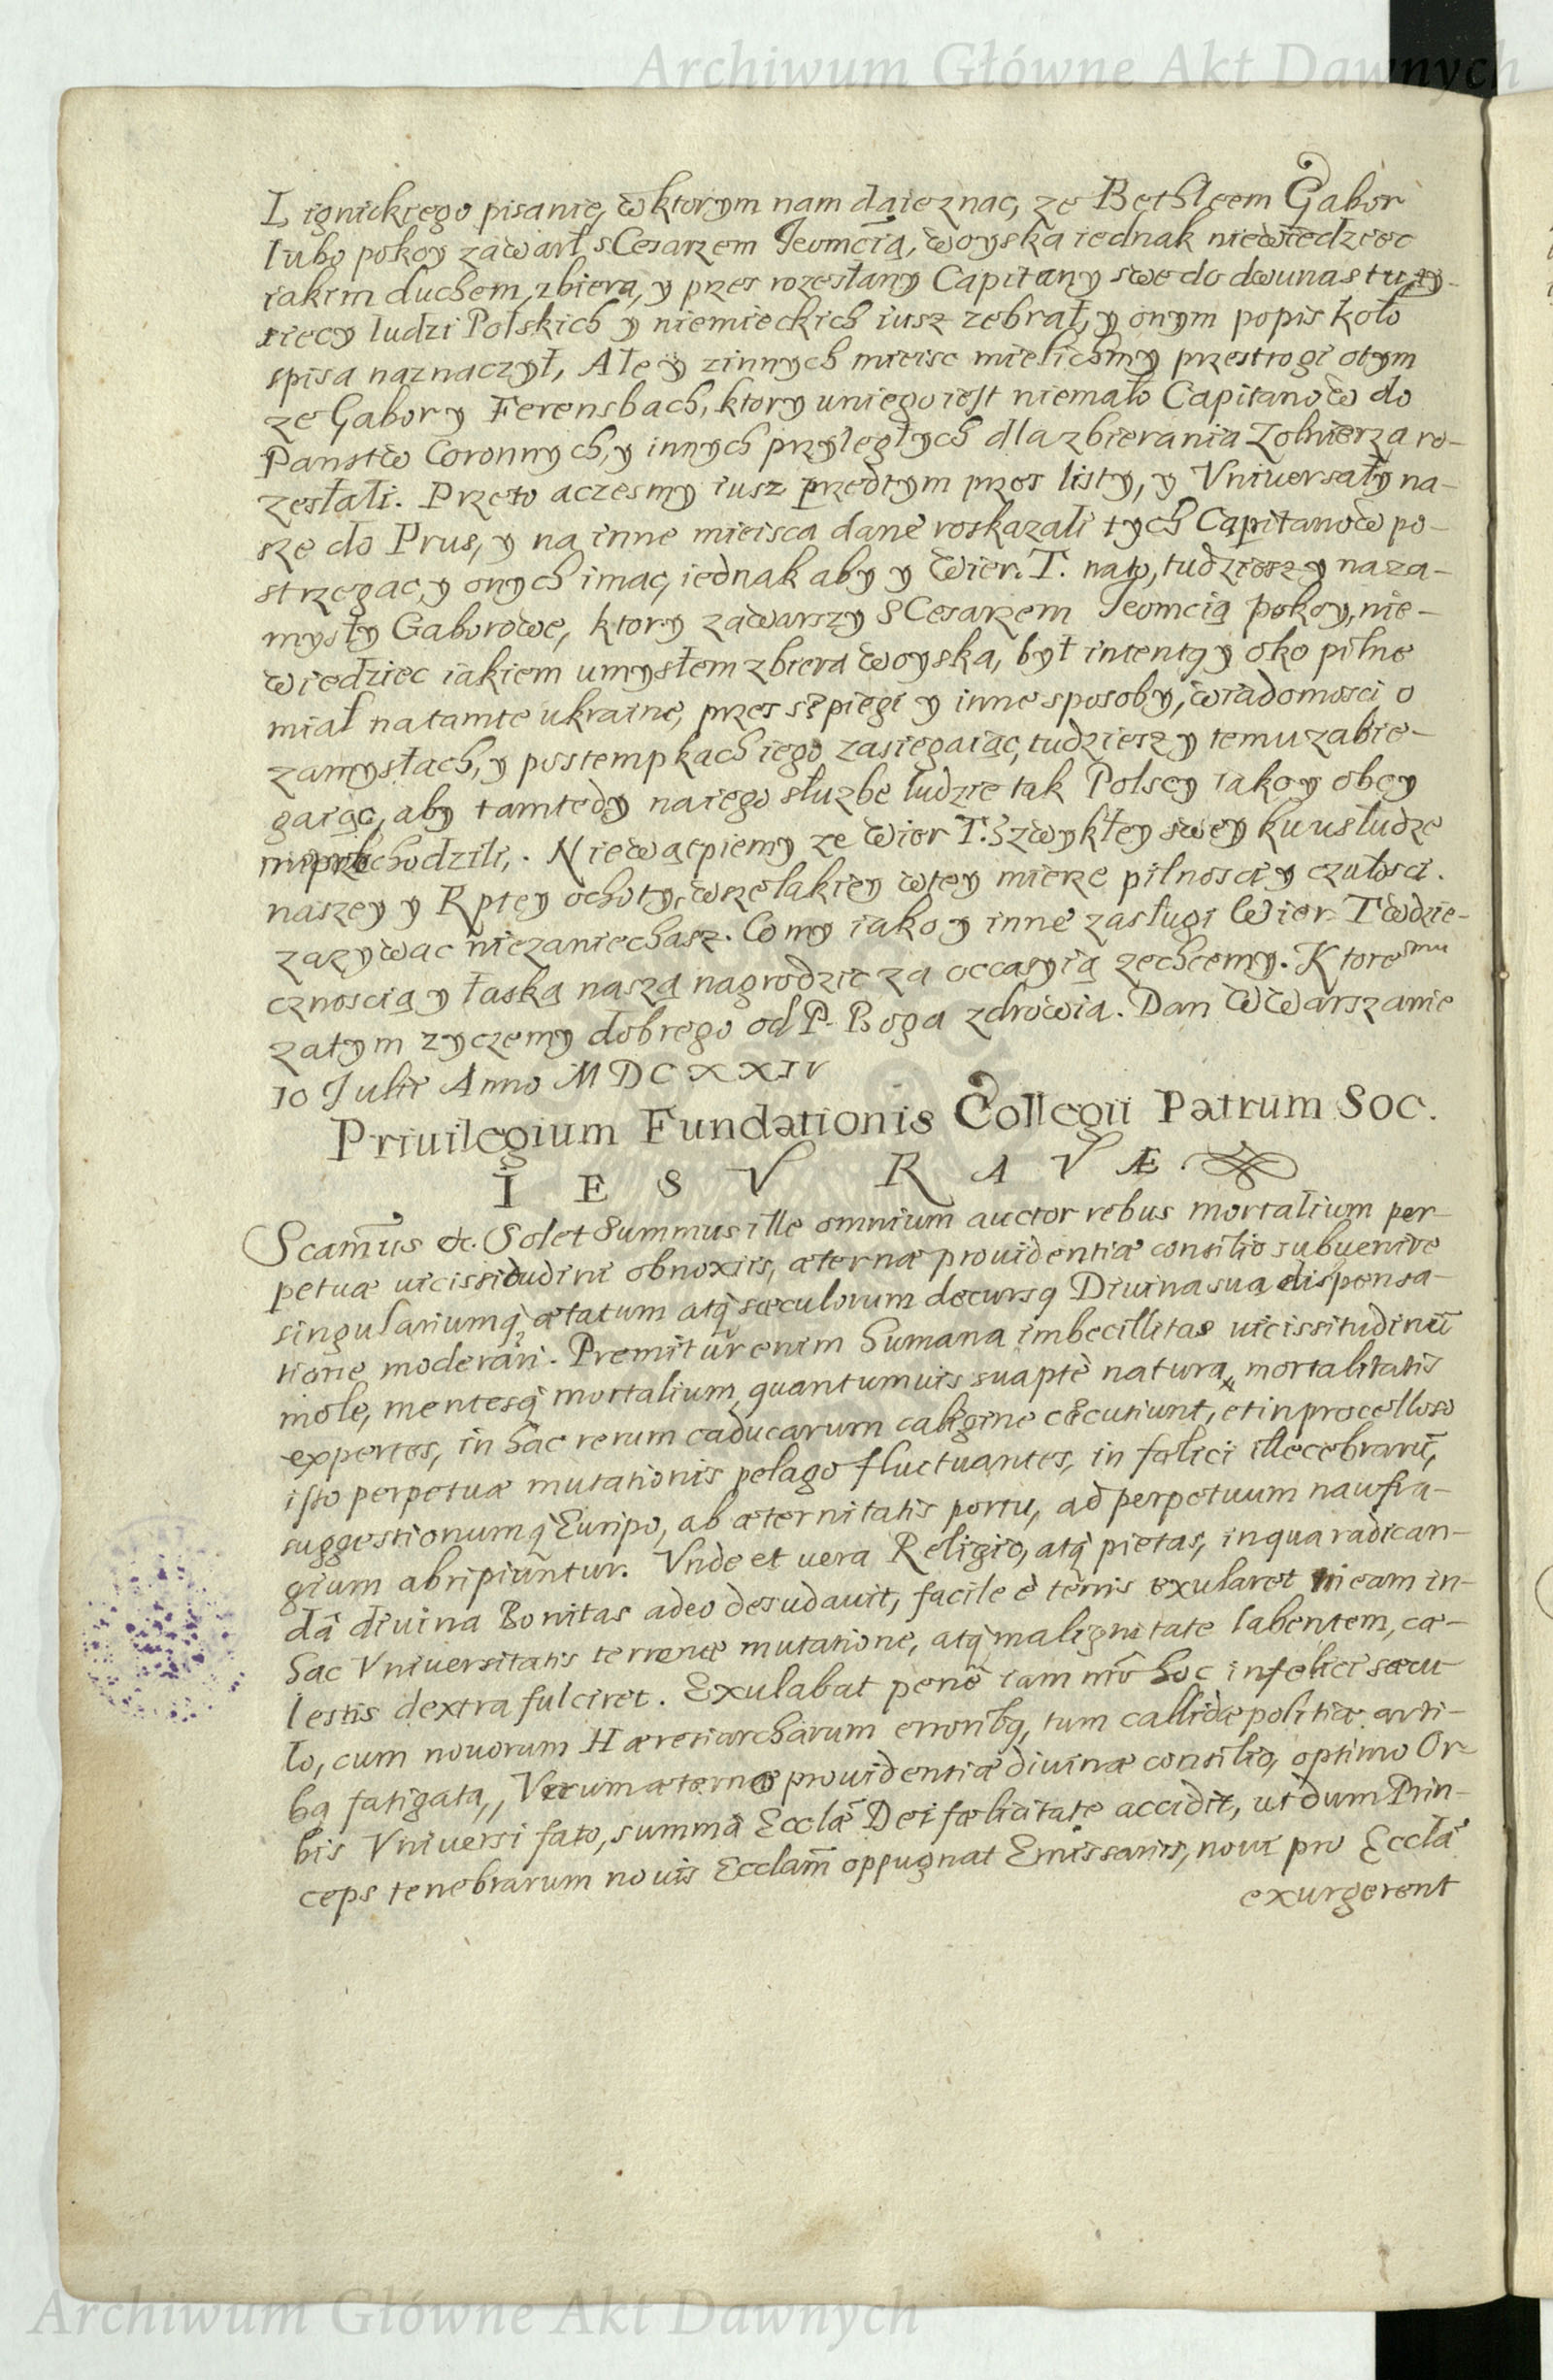 Archiwum Główne Akt Dawnych
Lignickiego pisanie, w ktorym nam daie znac, ze Bethleem Gabor
lubo pokoy zawarł s Cesarzem Jeomcią, woyska iednak niewiedziec
iakim duchem, zbiera, y przes rozesłany Capitany swe do dwunastu ty-
siecy ludzi Polskich y niemieckich iusz zebrał, y onym popis koło
spisa naznaczył, Ale y zinnych mieisc mielichmy przestrogi otym
ze Gabor y Ferensbach, ktory uniego iest niemało Capitanow do
Panstw Coronnych, y innych przyległych dla zbierania Zolnierza ro-
zesłali. Przeto aczesmy iusz przedtym przes listy, y Vniversały na-
sze do Prus, y na inne mieisca dane roskazali tych Capitanow po-
strzegac, y onych imac, iednak aby y Wier. T. nato, tudziesz y naza-
mysły Gaborowe, ktory zawarszy S Cesarzem Jeomcią pokoy, nie-
wiedziec iakiem umysłem zbiera woyska, był intenty y oko pilne
miał natamte ukraine, przes szpiegi y inne sposoby, wiadomosci o
zamysłach, y postempkach iego zasiegaiąc, tudziesz y temu zabie-
gaiąc, aby tamtedy naiego słuzbe ludzie tak Polscy iako y obcy
chodzili,. Niewątpiemy ze Wier T. Zzwykłey swey ku usludze
naszey y Rptey ochoty, wszelakiey wtey mierze pilnosci y czułosci.
zazywac niezaniechasz. Co my iako y inne zasługi Wier. T wdzie-
cznoscią y łaską naszą nagrodzic za occasyią zechcemy. Ktoremu
zatym zyczemy dobrego od P. Boga zdrowia. Dan W Warszawie
10 Julii Anno MDCXXIV
Priuilegium Fundationis Collegii Patrum Soc.
IESV RAVÆ.
Scamus &c. Solet Summus ille omnium auctor rebus mortalium per-
petuæ uicissidudini obnoxiis, æternæ prouidentiæ consilio subuenire
singulariumq̃ ætatum atq̃ sæculorum decursq Diuina sua dispensa-
tione moderari. Premitur enim humana imbecillitas uicissitudinũ
mole, mentesq̃ mortalium, quantumuis suaptè natura, mortalitatis
expertes, in hac rerum caducarum caligine cæcutiunt, et in procelloso
isto perpetuæ mutationis pelago fluctuantes, in fælici illecebrarũ,
suggestionumq̃ Euripo, ab æternitatis portu, ad perpetuum naufra-
gium abripiuntur. Vnde et uera Religio, atq̃ pietas, in qua radican-
dâ diuina Bonitas adeo desudauit, facile è terris exularet ni eam in
hac Vniuersitatis terrenæ mutatione, atq̃ malignitate labentem, cæ-
lestis dextra fulciret. Exulabat penè iam hoc infelici sæcu
lo, cum nouorum Hæretiarcharum erroribq, tum callidæ politiæ arti-
bq fatigata,, Verum æternæ prouidentiæ diuinæ consilio, optimo Or-
bis Vniuersi fato, summâ Ecclæ Dei fælicitate accidit, ut dum Prin-
ceps tenebrarum nouis Ecclam̃ oppugnat Emissariis, noui pro Ecclâ
exurgerent
Archiwum Główne Akt Dawnych